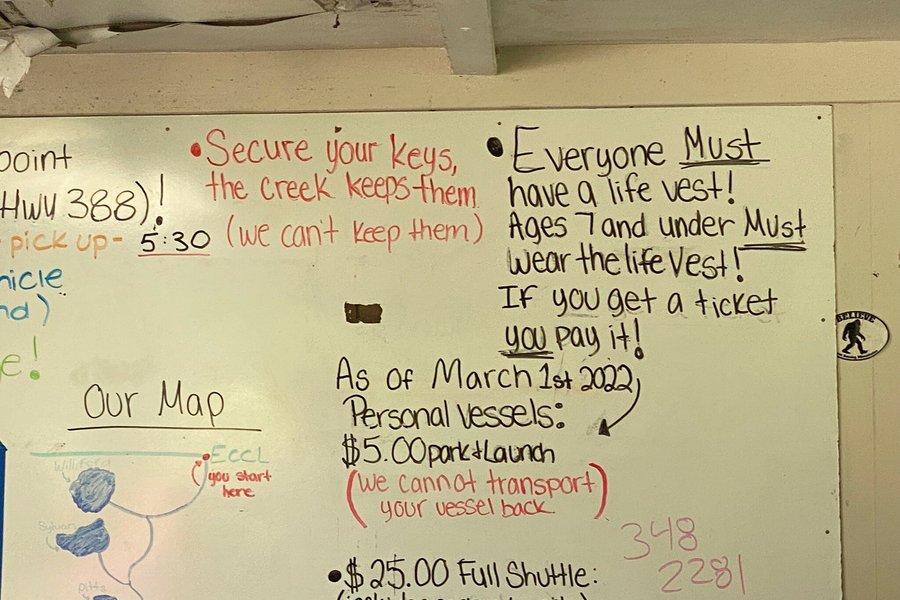 point
Hwy 388)!
pick up- 5:30
hicle
nd)
e!
• Secure your keys,
the creek keeps them
(we can't keep them)
• Everyone Must
have a life vest!
Ages 7 and under Must
wear the life vest!
If you get a ticket
you pay it!
As of March 1st 2022,
Personal Vessels:
$5.00 park + Launch
(we cannot transport)
your vessel back
• $25.00 Full Shuttle:
348
2281
Our Map
ECCL
you start
here
BELIEVE